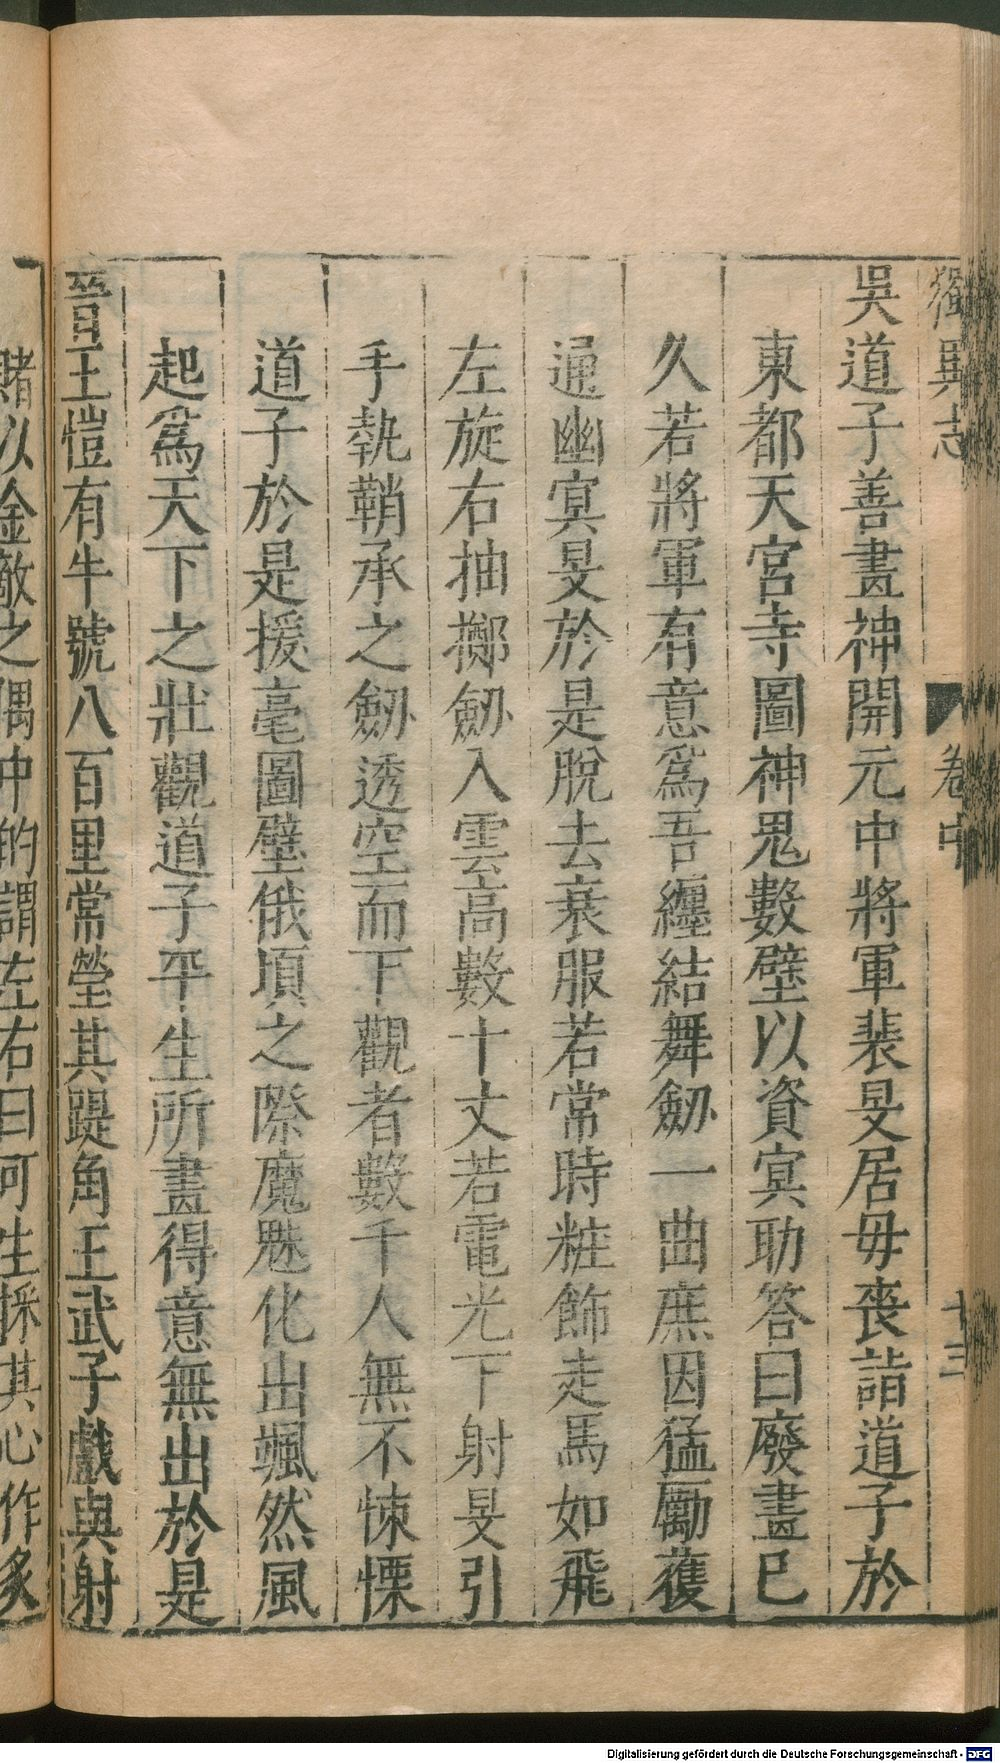 獨異志 卷中 十三
吳道子善畫神開元中將軍裴旻居毋喪詣道子於
東都天宮寺圖神鬼數壁以資冥助答曰廢畫已
久若將軍有意爲吾纏結舞劒一曲庶因猛勵獲
通幽冥旻於是脫去衰服若常時粧飾走馬如飛
左旋右抽擲劒入雲高數十丈若電光下射旻引
手執鞘承之劒透空而下觀者數千人無不悚慄
道子於是援毫圖壁俄頃之際魔魅化出颯然風
起爲天下之壯觀道子平生所畫得意無出於是
晉王愷有牛號八百里常瑩其蹄角王武子戲與射
賭以金敵之偶中的謂左右曰可生採其心作炙
Digitalisierung gefördert durch die Deutsche Forschungsgemeinschaft - DFG